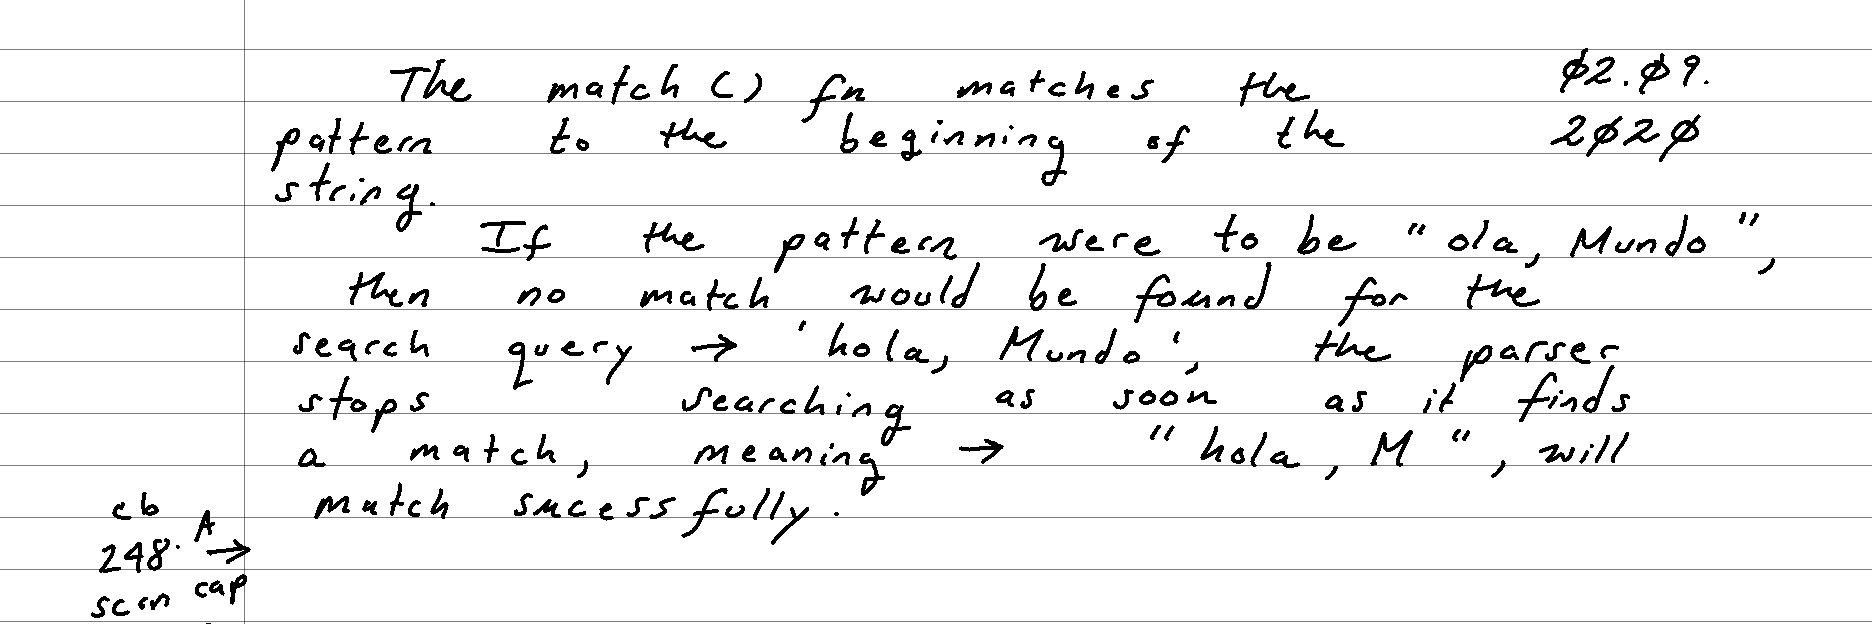 The match() fn matches the
pattern to the beginning of the
string.
Ø2.Ø9.
2Ø2Ø
If the pattern were to be "ola, Mundo",
then no match would be found for the
search query → 'hola, Mundo', the parser
stops searching as soon as it finds
a match, meaning → "hola, M", will
match sucessfully.
cb
248. A →
scrn cap